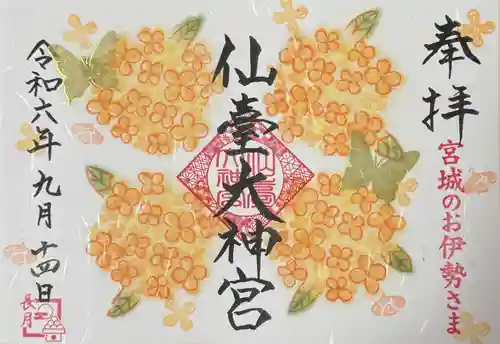 奉拝
宮城のお伊勢さま
仙臺大神宮
令和六年九月十四日
長月